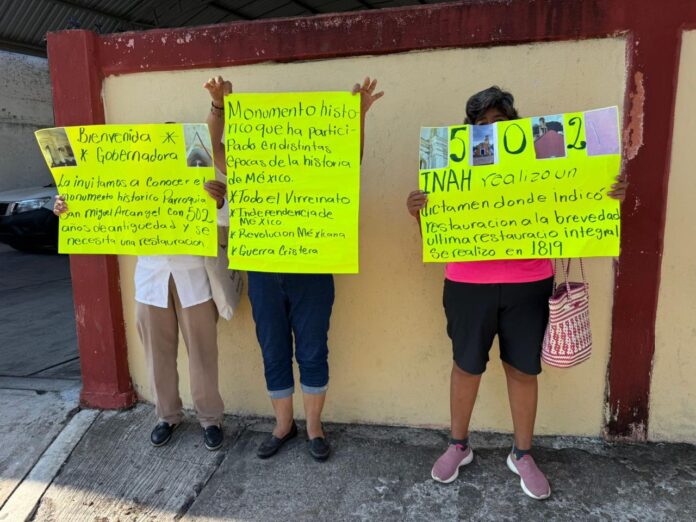 Bienvenida *
* Gobernadora
La invitamos a conocer el
monumento historico Parroquia
San miguel Arcangel con 502
años de antiguedad y se
necesita una restauracion
Monumento histo-
rico que ha partici-
Pado en distintas
epocas de la historia
de México.
* Todo el Virreinato
* Independencia de
México
* Revolucion Méxicana
* Guerra Cristera
502
INAH realizo un
dictamen donde indicó
restauracion a la brevedad
ultima restauracio integral
Se realizo en 1819